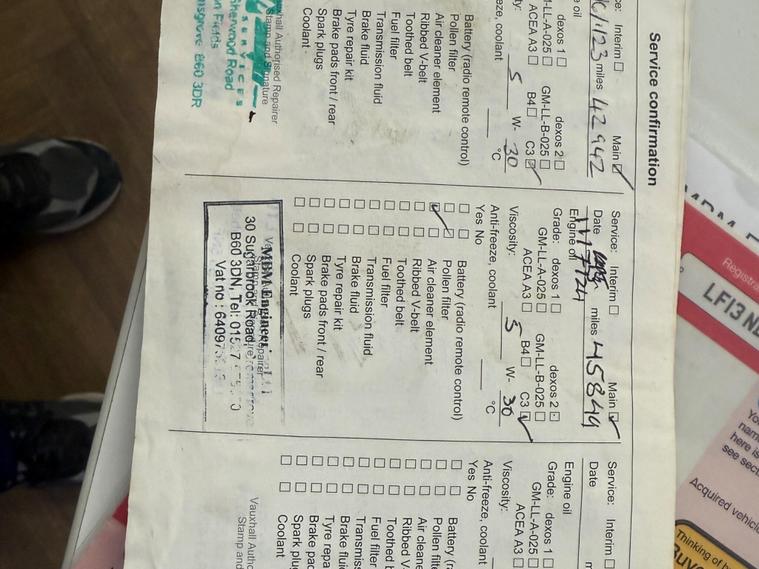 Service confirmation
Interim ☐ Main ☑
miles 42942
e oil
dexos 1 ☐ dexos 2 ☐
GM-LL-A-025 ☐ GM-LL-B-025 ☐
ACEA A3 ☐ B4 ☐ C3 ☑
5 W- 30
eze, coolant °C
Battery (radio remote control)
Pollen filter
Air cleaner element
Ribbed V-belt
Toothed belt
Fuel filter
Transmission fluid
Brake fluid
Tyre repair kit
Brake pads front / rear
Spark plugs
Coolant
auxhall Authorised Repairer
Stamp and Signature
SERVICES
Sherwood Road
B60 3DR
Service: Interim ☐ Main ☑
Date miles 45844
Engine oil
Grade: dexos 1 ☐ dexos 2 ☐
GM-LL-A-025 ☐ GM-LL-B-025 ☐
ACEA A3 ☐ B4 ☐ C3 ☑
Viscosity: 5 W- 30
Anti-freeze, coolant °C
Yes No
Battery (radio remote control)
Pollen filter
Air cleaner element
Ribbed V-belt
Toothed belt
Fuel filter
Transmission fluid
Brake fluid
Tyre repair kit
Brake pads front / rear
Spark plugs
Coolant
30 Sugarbrook Road,
B60 3DN, Tel: 01527
Vat no : 64097
Service: Interim ☐
Date
Engine oil
Grade: dexos 1 ☐
GM-LL-A-025 ☐
ACEA A3 ☐
Viscosity:
Anti-freeze, coolant
Yes No
Battery (
Pollen filter
Air cleane
Ribbed V-
Toothed b
Fuel filter
Transmiss
Brake flui
Tyre repa
Brake pac
Spark plug
Coolant
Vauxhall Autho
Stamp and
Registra
LF13 N
Yo
nam
here is
see sect
Acquired vehicl
Thinking of b
Buy